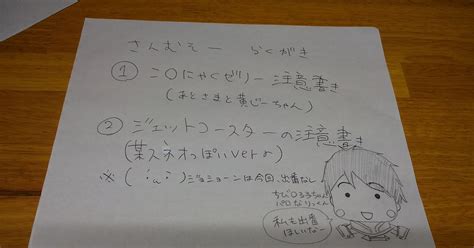 さんむそー らくがき
① こ○にゃくゼリー注意書き
(あとさまと黄じーちゃん)
② ジェットコースターの注意書き
(某スネオっぽいverよ)
※( ･ω･ )ジョジョーンは今回、出番なし
ちび○る子ちゃん
パロなりっくん
私も出番
ほしいなー